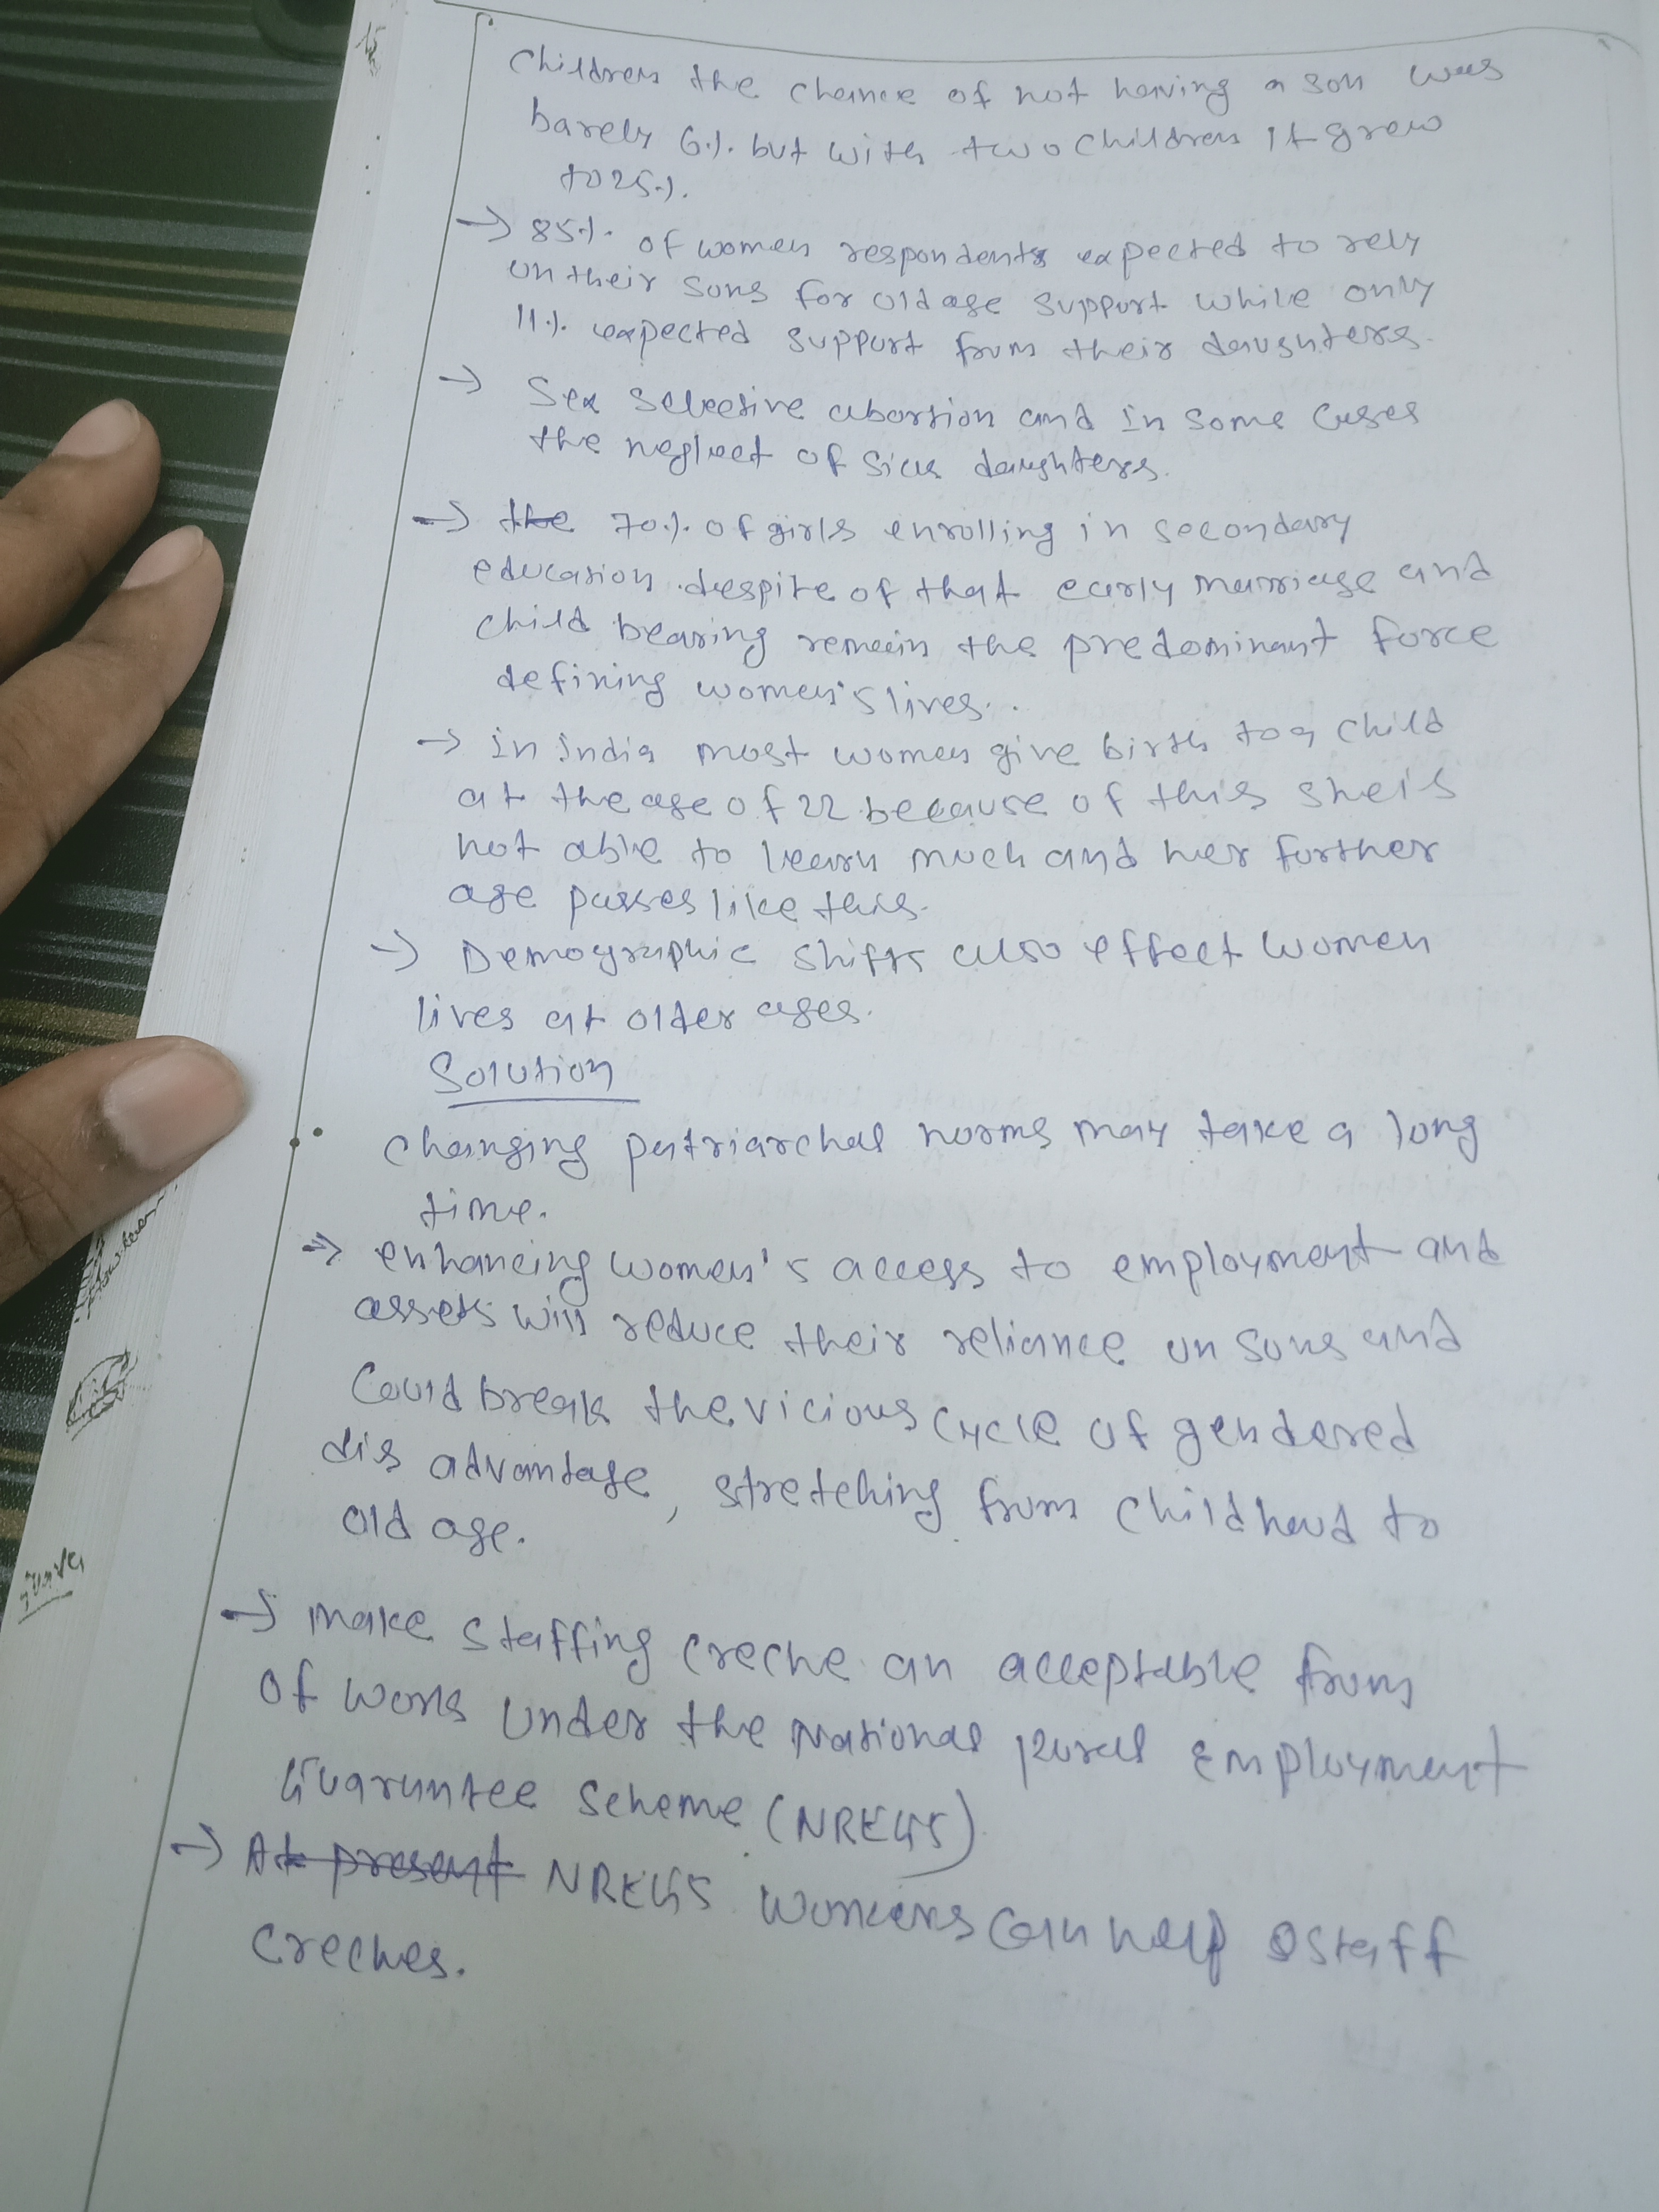 Children the chance of not having a son was
barely 6%. but with two children it grew
to 25%.
→ 85% of women respondents expected to rely
on their sons for old age support while only
11% expected support from their daughters.
→ Sex selective abortion and in some cases
the neglect of sick daughters.
→ the 70% of girls enrolling in secondary
education. despite of that early marriage and
child bearing remain the predominant force
defining women's lives..
→ in india most women give birth to a child
at the age of 22 because of this she is
not able to learn much and her further
age passes like this.
→ Demographic shifts also effect women
lives at older ages.
Solution
changing patriarchal norms may take a long
time.
→ enhancing women's access to employment and
assets will reduce their reliance on sons and
Could break the vicious cycle of gendered
dis advantage, stretching from childhood to
old age.
→ make staffing creche an acceptable from
of work under the National Rural Employment
Guaruntee Scheme (NREGS)
→ At present NREGS workers can help staff
creches.